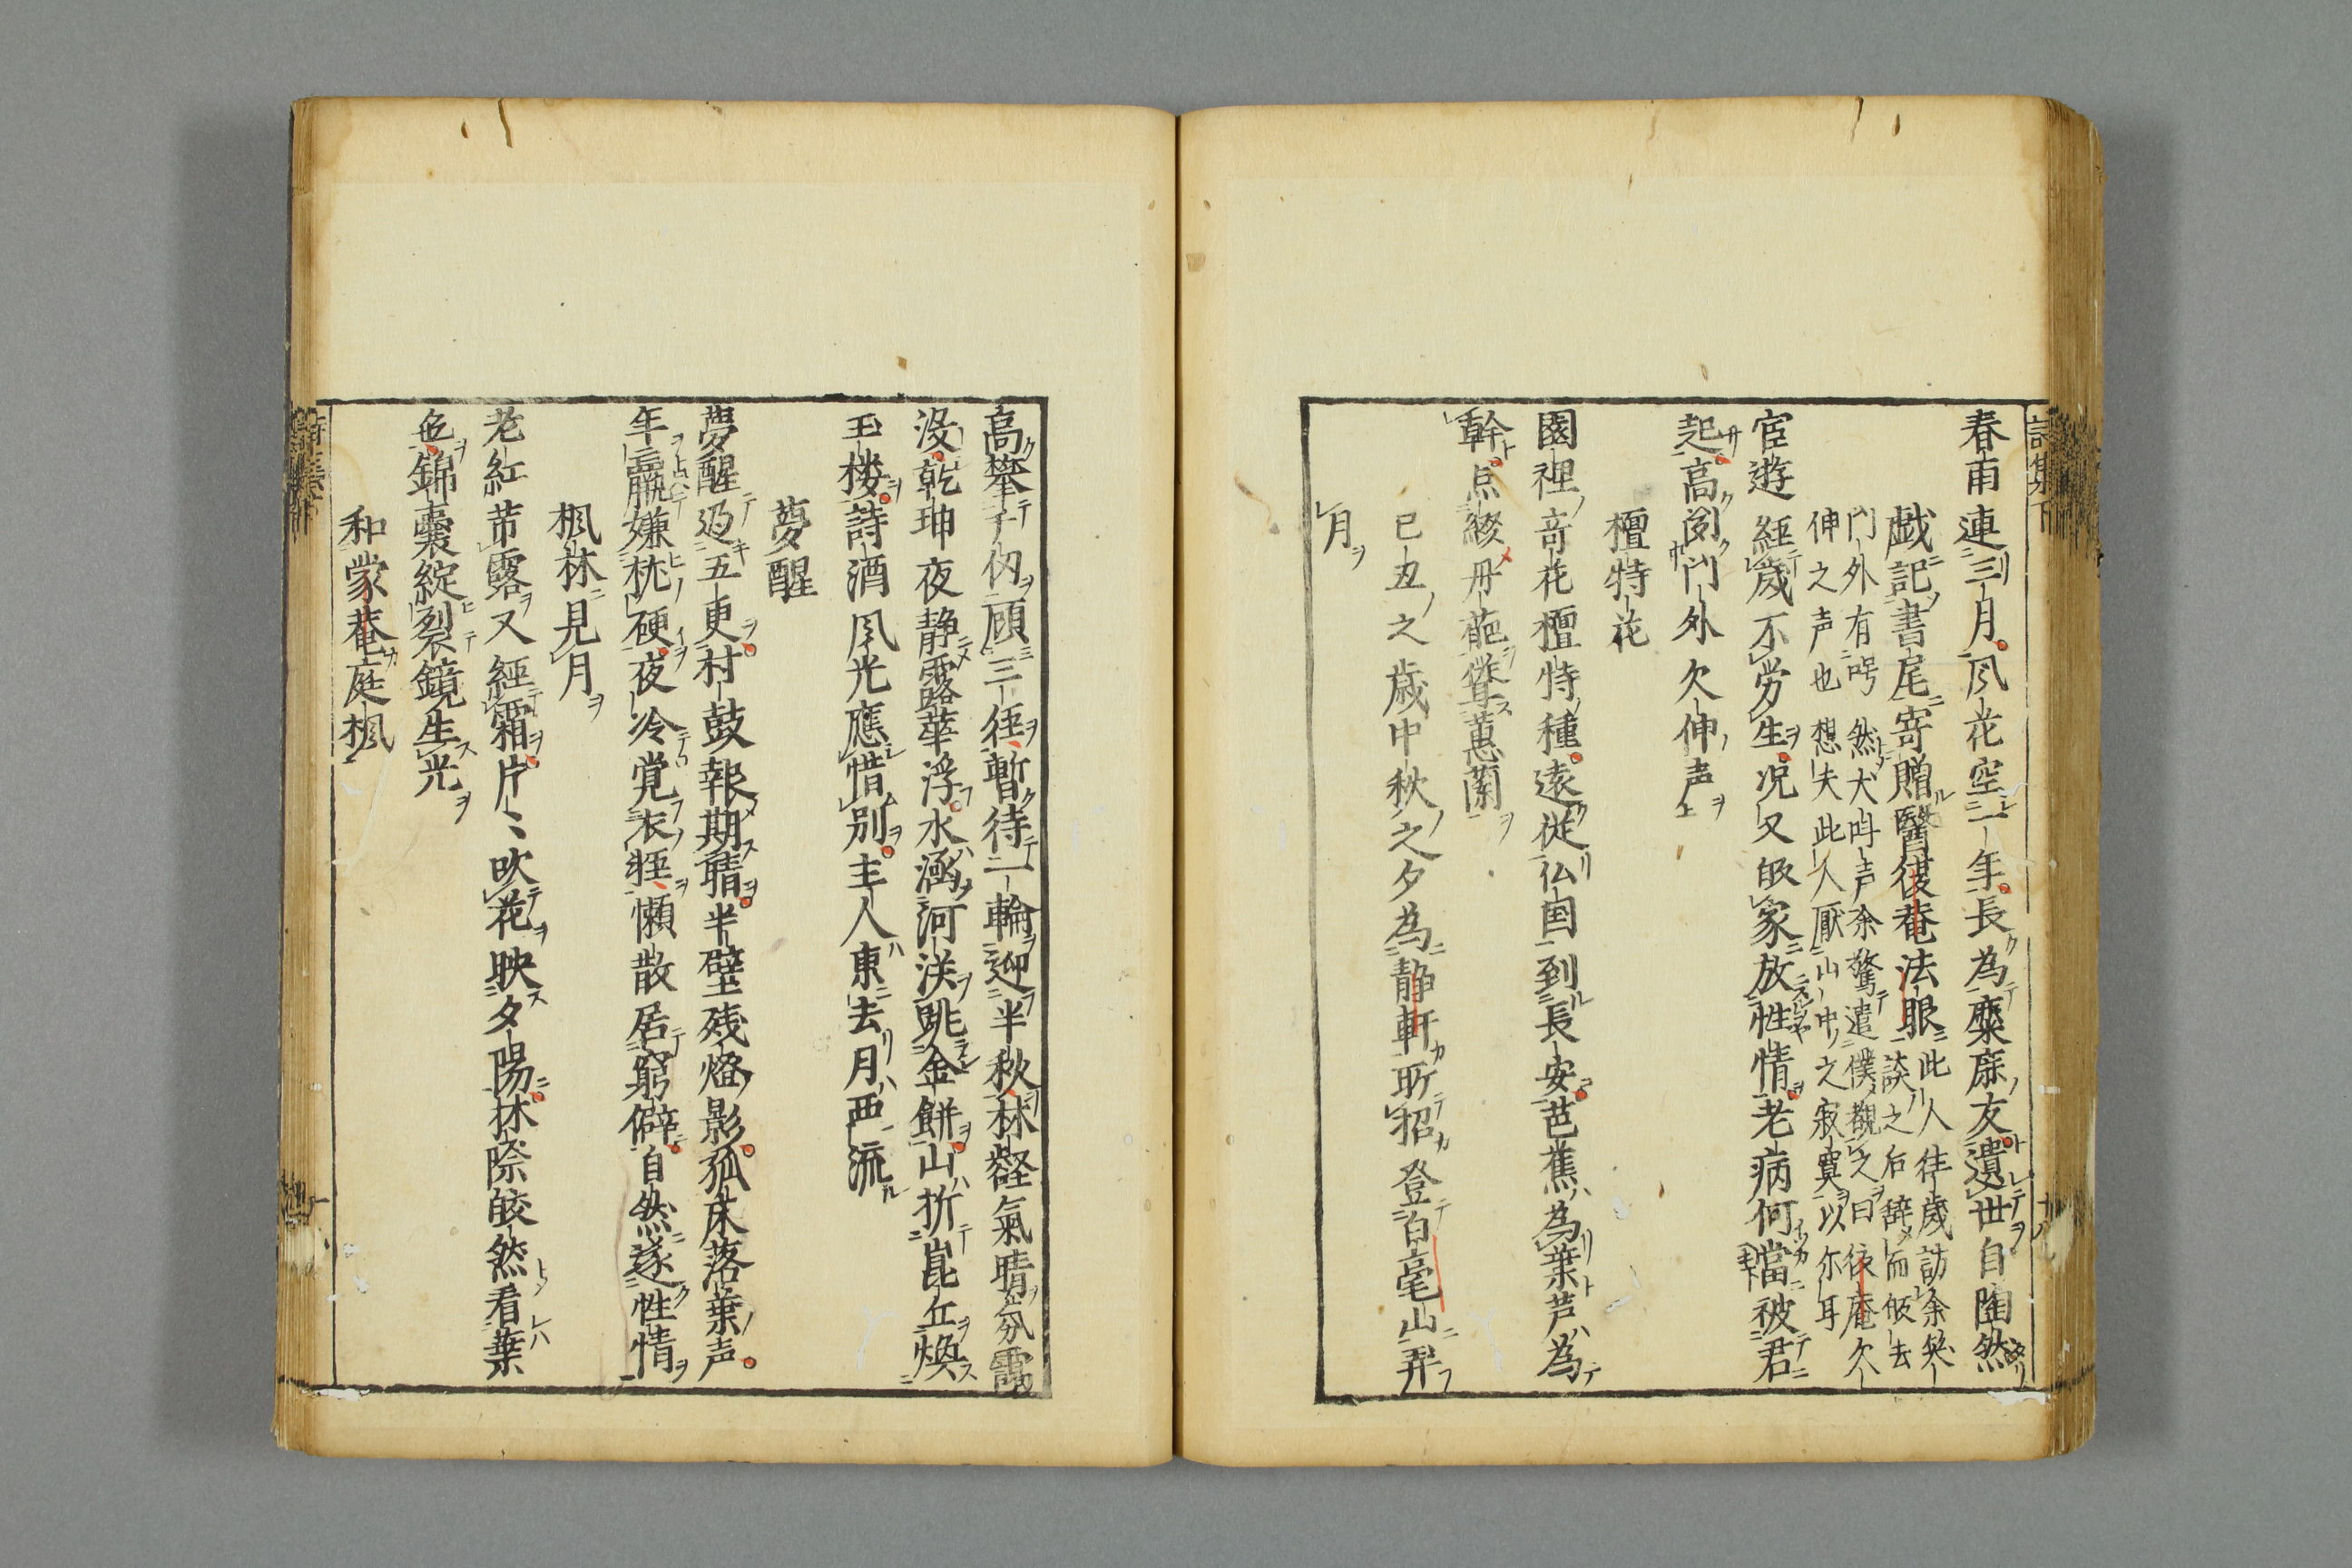 春甫連三月風花空一年長為麋麻友遺世自陶然
戯記書尾寄贈醫復菴法眼
此人往歲訪余
談之后辭而皈去
門外有呺然犬吽声余驚遣僕覩之曰依庵欠
伸之声也想夫此人厭山中之寂寞以尓耳
官遊経歲不労生况又皈家放性情老病何當被君
起高閣門外欠伸声
檀特花
園裡奇花檀特種遠従仏国到長安芭蕉為葉芦為
幹点綴丹葩聳蕙蘭
已丑之歲中秋之夕為静軒所招登白毫山弄
月
高攀千仭顧三径暫待一輪迎半秋林壑氣晴氛靄
没乾坤夜静露華浮水涵河渼眺金餅山折崑丘煥
玉楼詩酒風光應惜別主人東去月西流
夢醒
夢醒過五更村鼓報期晴半壁残燈影孤床落葉声
年羸嫌枕硬夜冷覚衣軽懶散居窮僻自然遂性情
楓林見月
老紅帯露又經霜片〻吹花映夕陽林際皎然看葉
色錦囊綻裂鏡生光
和蒙菴庭楓
詩集下